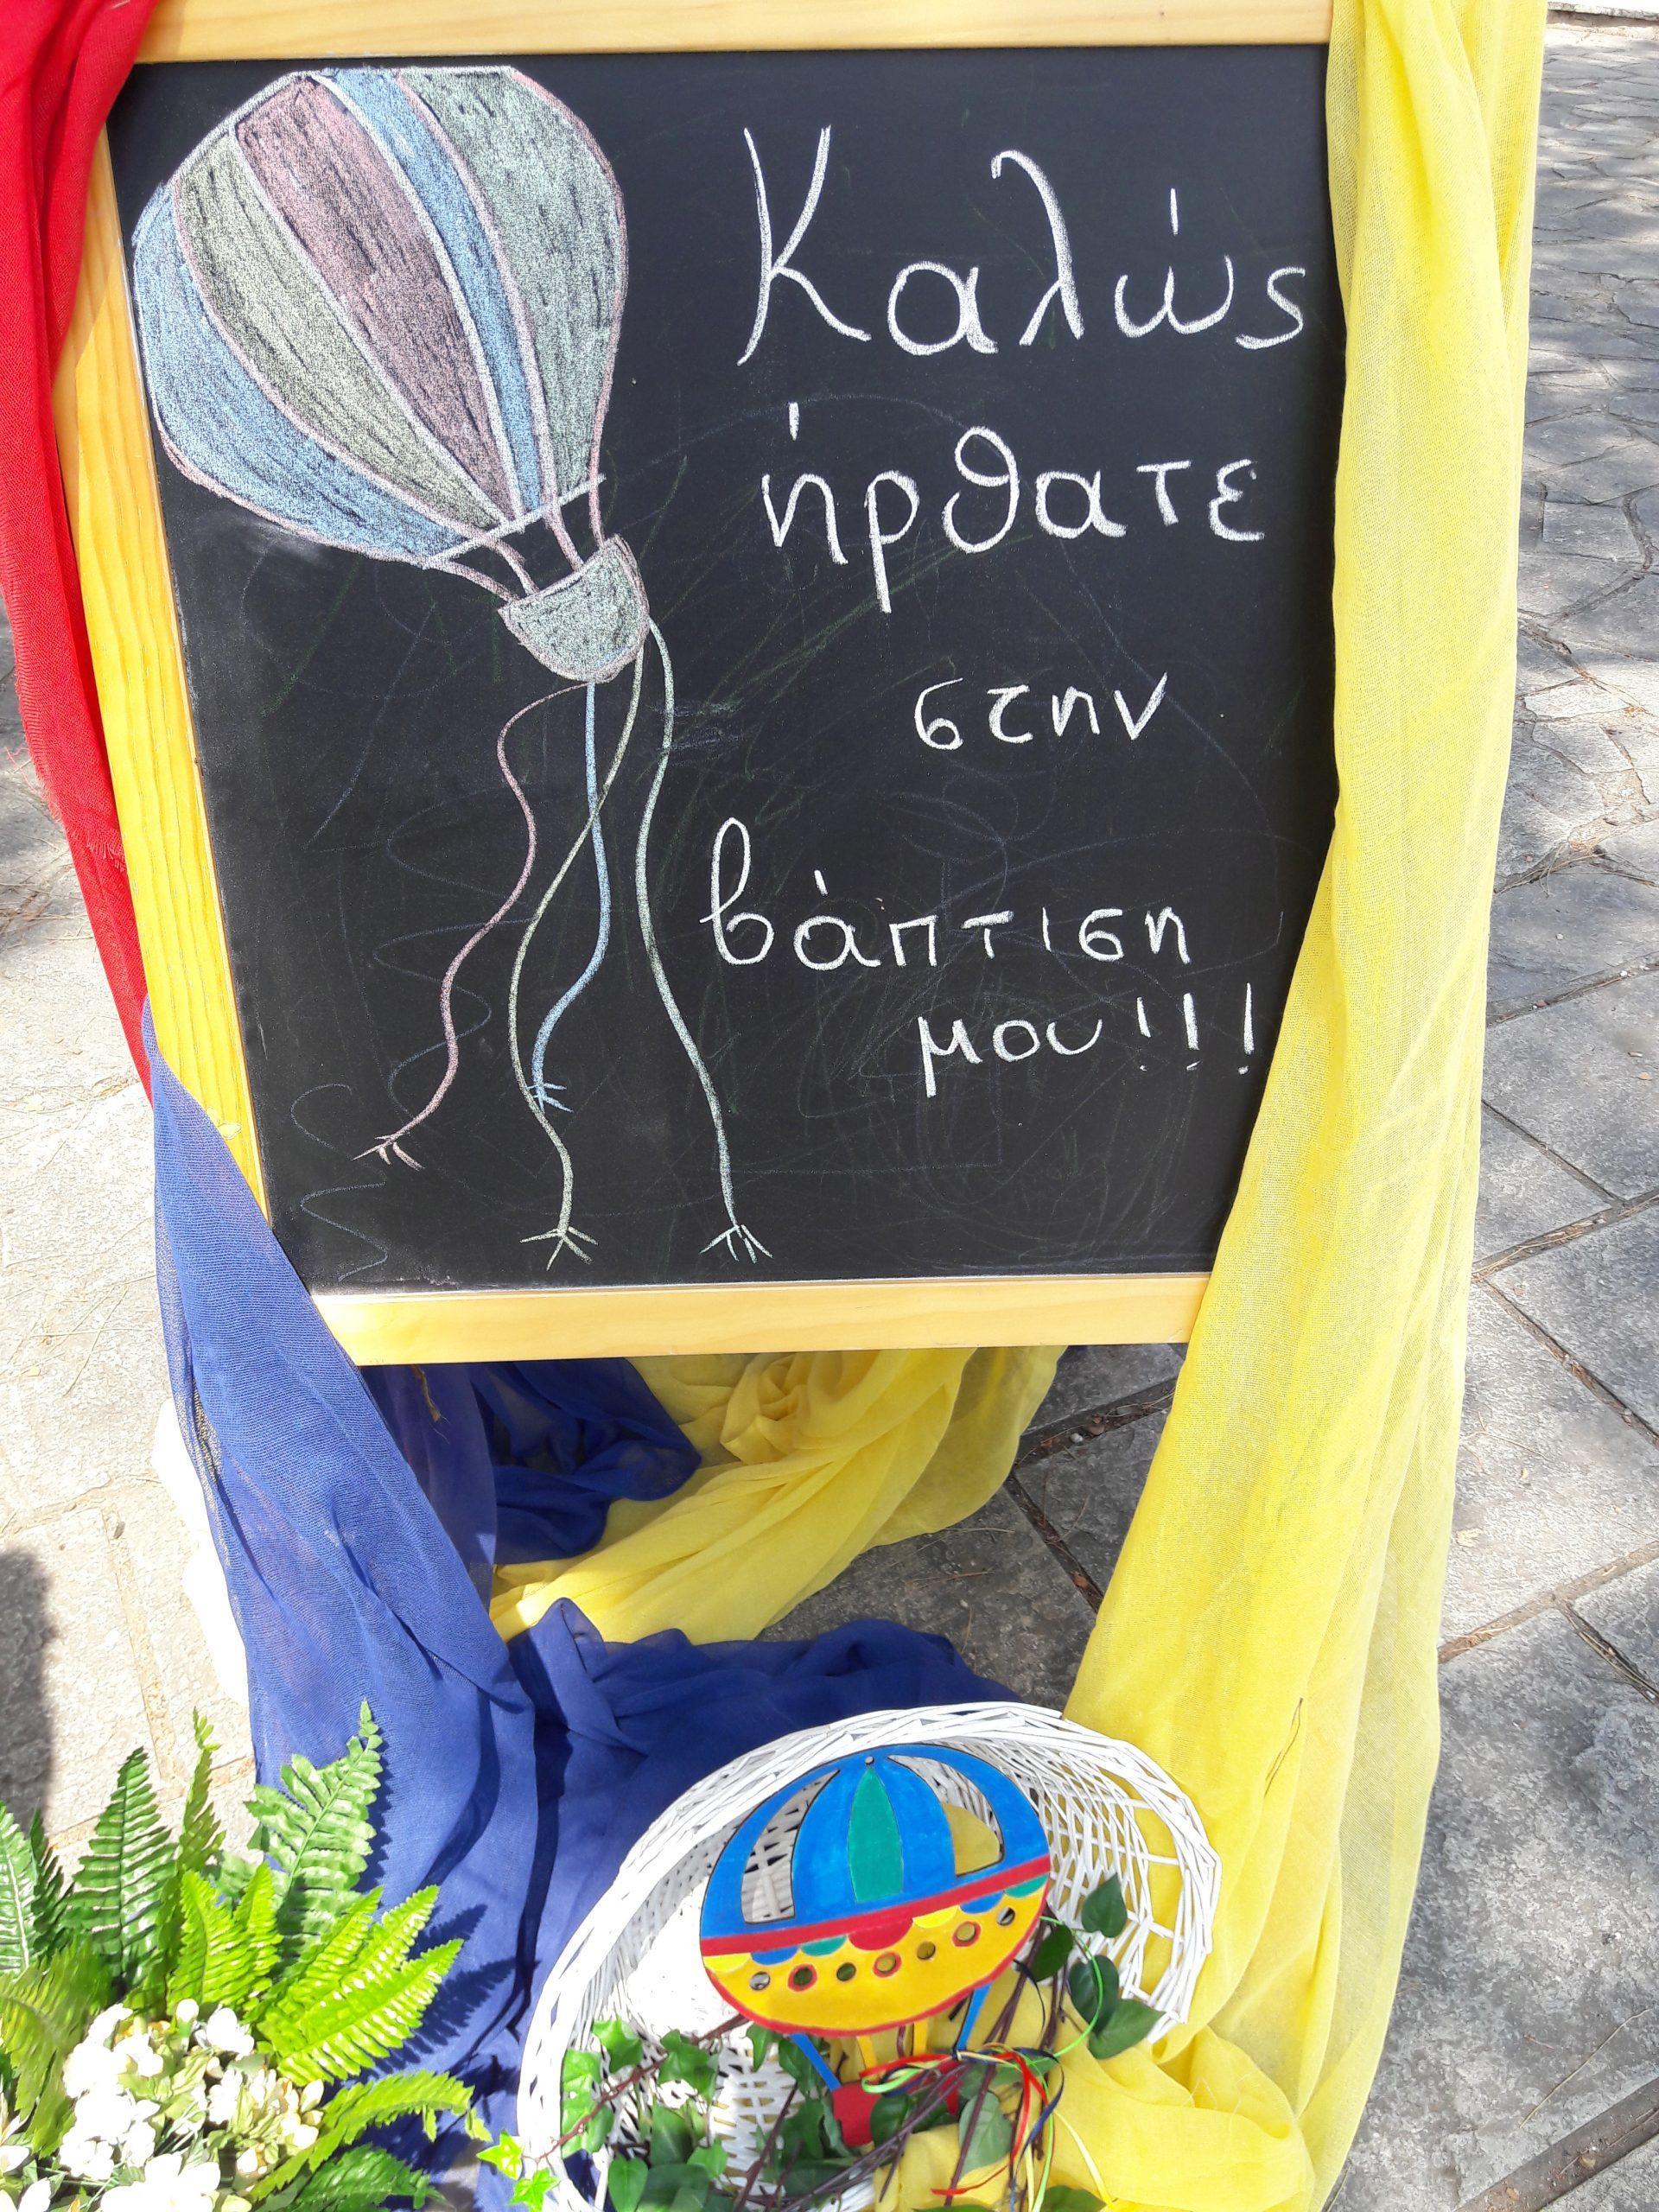 Καλώς
ήρθατε
στην
βάπτιση
μου!!!